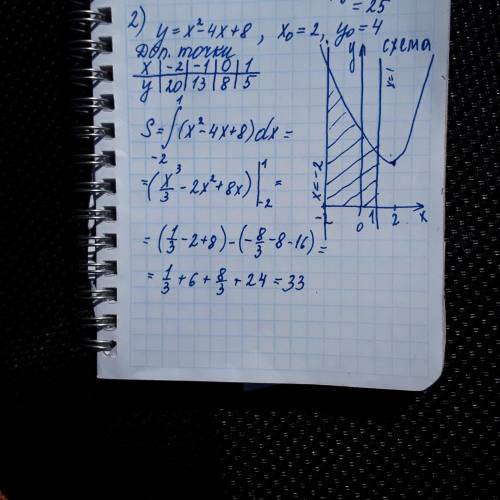 = 25
2) y = x² - 4x + 8, x₀ = 2, y₀ = 4
Доп. точки
x | -2 | -1 | 0 | 1
y | 20 | 13 | 8 | 5
схема
y
x=1
x=-2
-2 0 1 2 x
S = ∫₋₂¹ (x² - 4x + 8) dx =
= (x³/3 - 2x² + 8x) |₋₂¹ =
= (1/3 - 2 + 8) - (-8/3 - 8 - 16) =
= 1/3 + 6 + 8/3 + 24 = 33